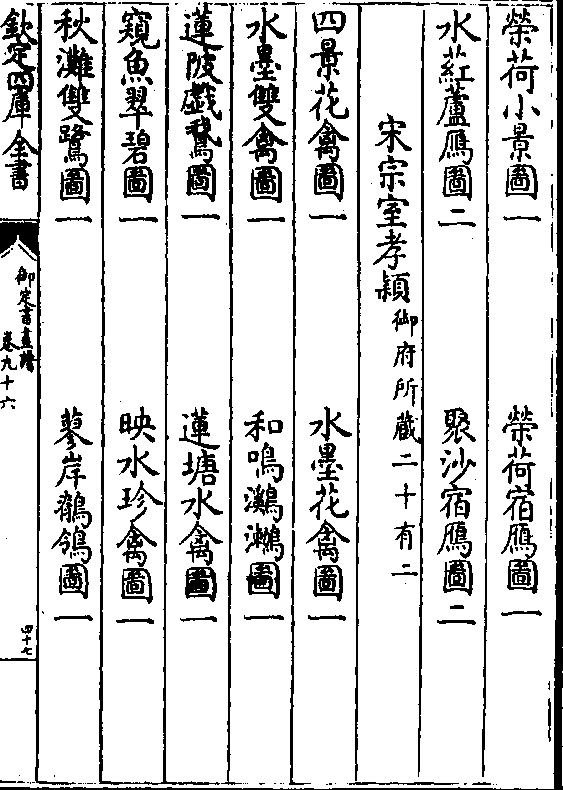 榮荷小景圖一　榮荷宿鴈圖一
水葒蘆鴈圖二　聚沙宿鴈圖二
宋宗室孝穎御府所藏二十有二
四景花禽圖一　水墨花禽圖一
水墨雙禽圖一　和鳴鸂鶒圖一
蓮陂戯鵞圖一　蓮塘水禽圖一
窺魚翠碧圖一　映水珍禽圖一
秋灘雙鷺圖一　蓼岸鶺鴒圖一
欽定四庫全書
御定書畫譜
卷九十六
四十七